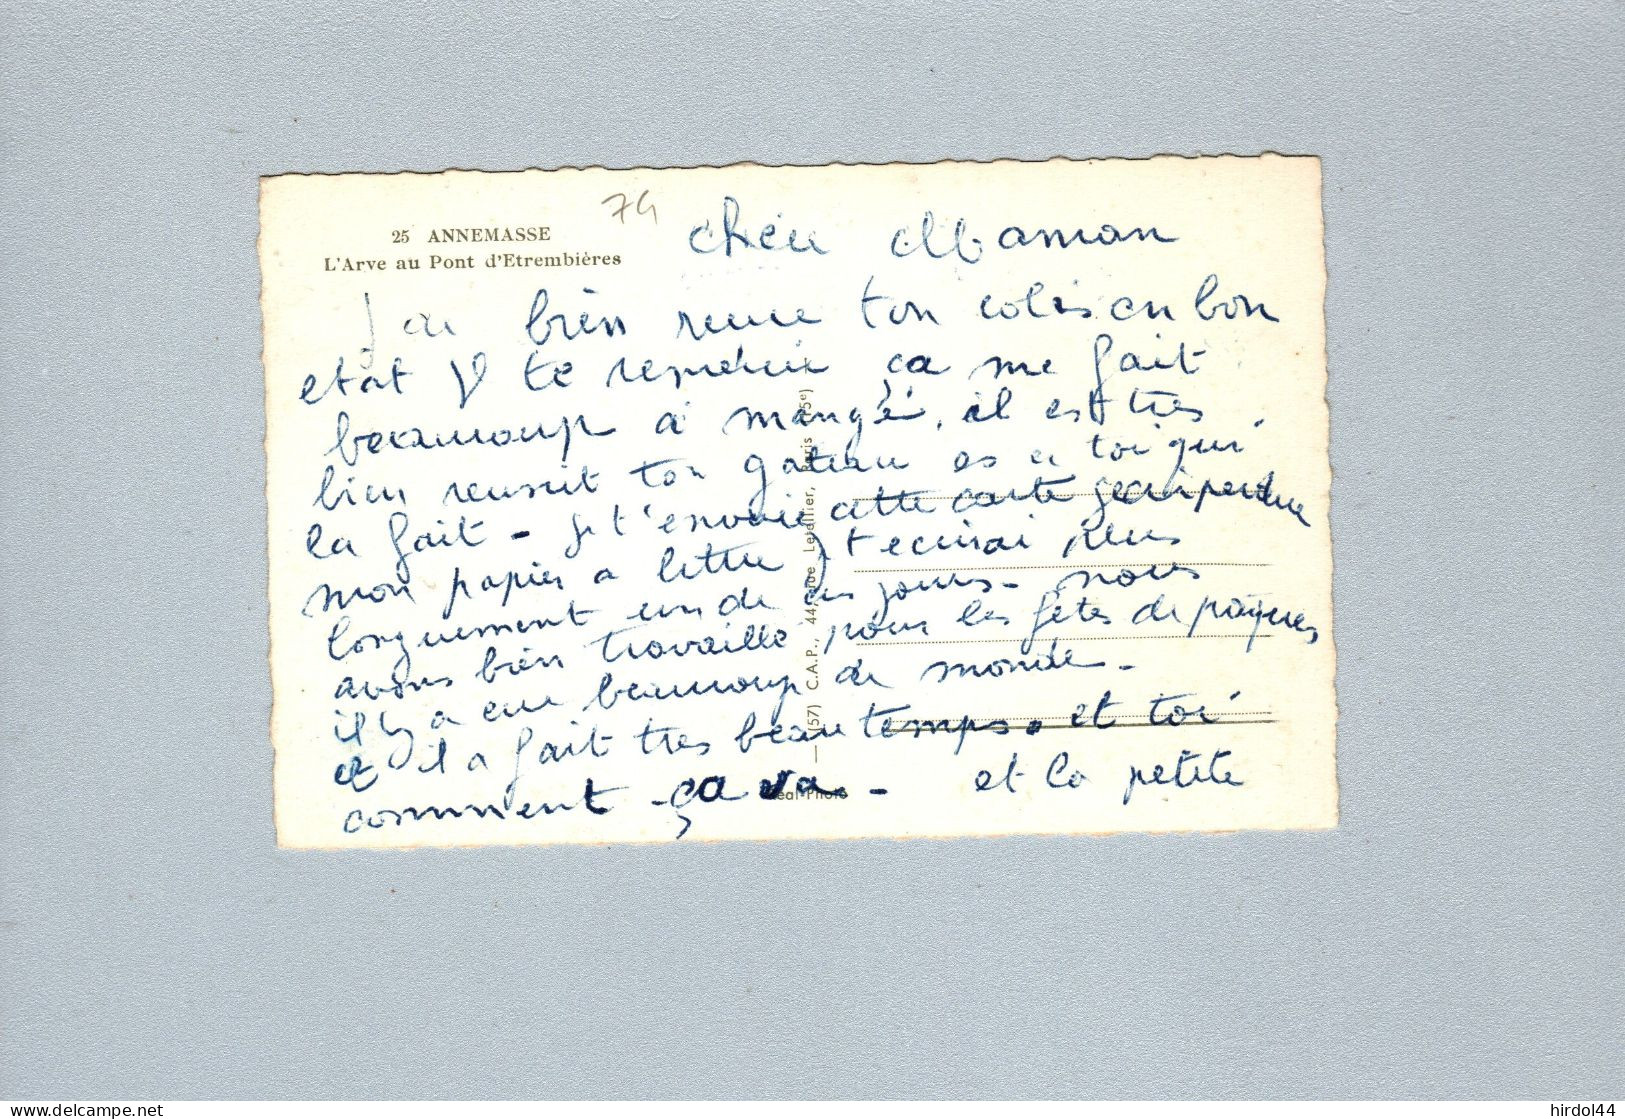 25 ANNEMASSE
L'Arve au Pont d'Etrembières
74
chère Maman
J'ai bien reçue ton colis en bon
etat Je te remercie ça me fait
beaucoup a mangé, il est tres
bien reussit ton gateau es a toi qui
la fait - Je t'envoie cette carte jeai perdue
mon papier a lettre Je t ecrirai plus
longuement un de ces jours - nous
avons bien travaillé pour les fêtes de pâques
il y a eu beaucoup de monde -
et il a fait tres beau temps. et toi
comment - ça va - et la petite
(57) C.A.P., 44, rue Letellier, Paris (15e)
Real-Photo
hirdol44